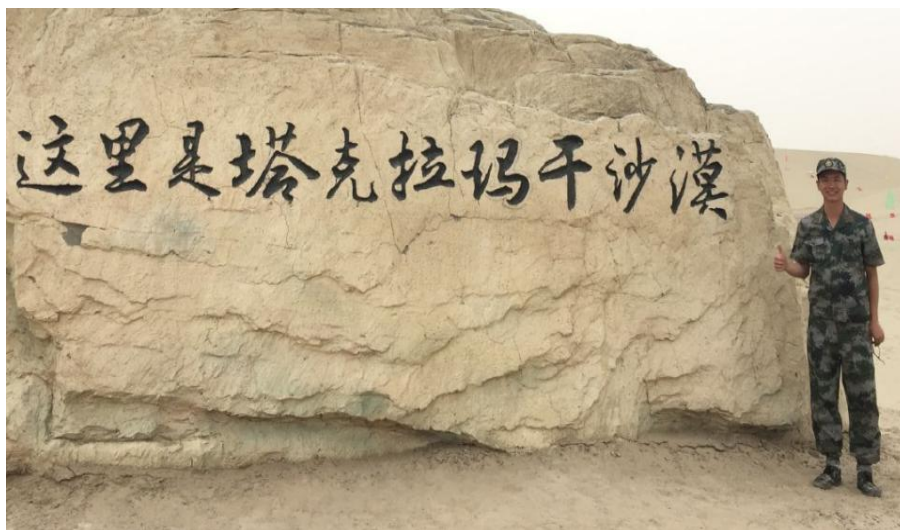 这里是塔克拉玛干沙漠